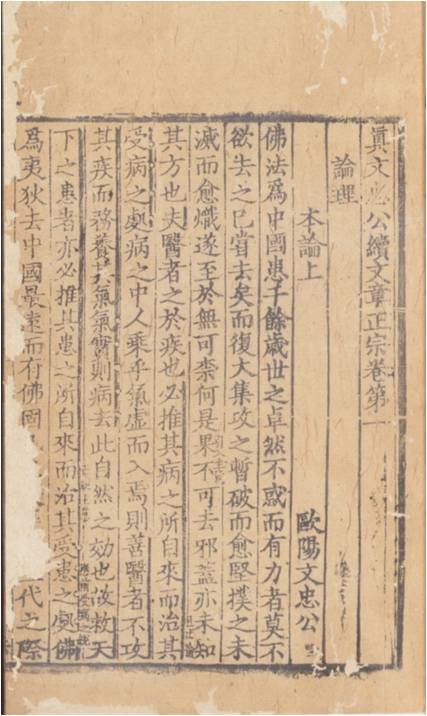 眞文忠公續文章正宗卷第一
論理
本論上 歐陽文忠公
佛法爲中國患千餘歳世之卓然不惑而有力者莫不
欲去之已甞去矣而復大集攻之暫破而愈堅撲之未
滅而愈熾遂至於無可柰何是果不可去邪蓋亦未知
其方也夫醫者之於疾也必推其病之所自來而治其
受病之處病之中人乗乎氣虛而入焉則善醫者不攻
其疾而務養其氣氣實則病去此自然之効也故救天
下之患者亦必推其患之所自來而治其受患之處佛
爲夷狄去中國最逺而有佛固 代之際